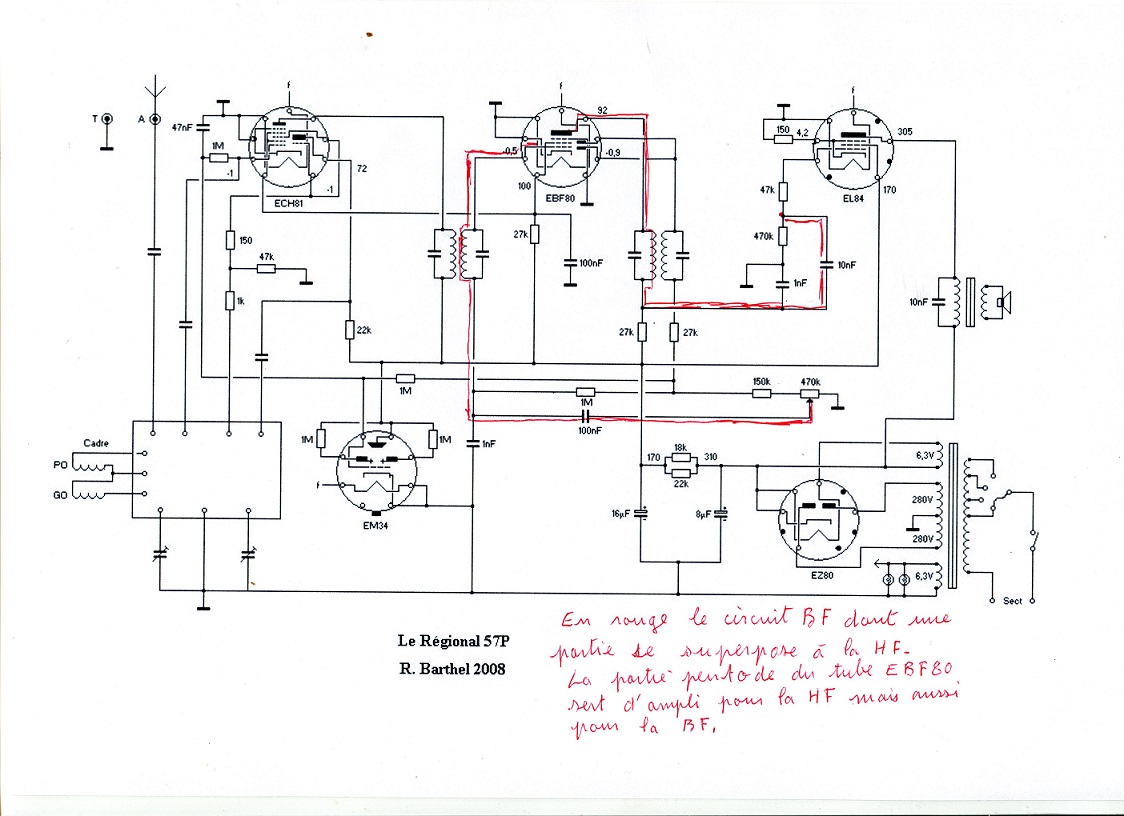 f
f
f
T
A
47nF
1M
-1
72
-1
ECH81
150
47k
1k
22k
92
-0,5
-0,9
100
EBF80
27k
100nF
150
4,2
305
170
EL84
47k
470k
10nF
1nF
10nF
27k
27k
1M
1M
150k
470k
100nF
1nF
Cadre
PO
GO
1M
1M
f
EM34
170
18k
310
22k
16µF
8µF
6,3V
280V
280V
EZ80
6,3V
Sect
Le Régional 57P
R. Barthel 2008
En rouge le circuit BF dont une
partie se superpose à la HF.
La partie pentode du tube EBF80
sert d'ampli pour la HF mais aussi
pour la BF.